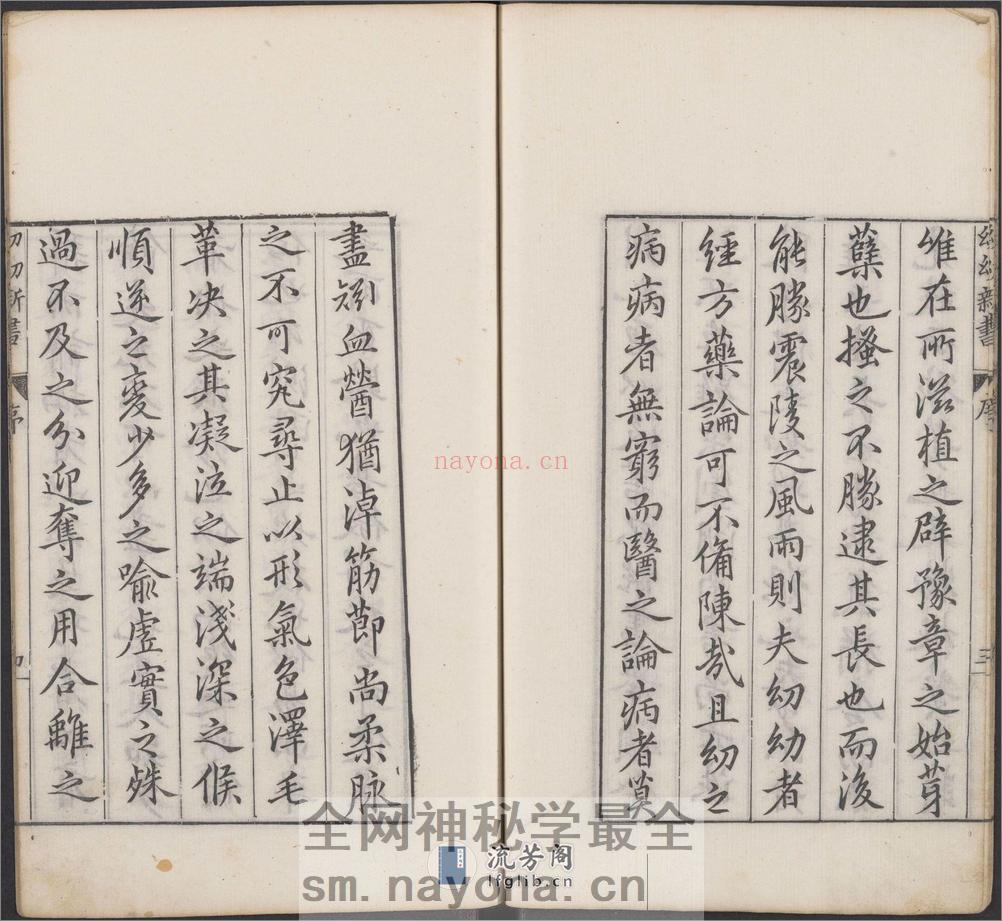 幼幼新書
序
三
維在所滋植之辟豫章之始芽
蘖也搔之不勝逮其長也而後
能勝震陵之風雨則夫幼幼者
經方藥論可不備陳哉且幼之
病病者無窮而醫之論病者莫
盡矧血營猶淖筋節尚柔脉
之不可究尋止以形氣色澤毛
革决之其凝泣之端淺深之候
順逆之變少多之喻虛實之殊
過不及之分迎奪之用合離之
幼幼新書
序
nayona.cn
全网神秘学最全
流芳阁
lfglib.cn
sm.nayona.cn